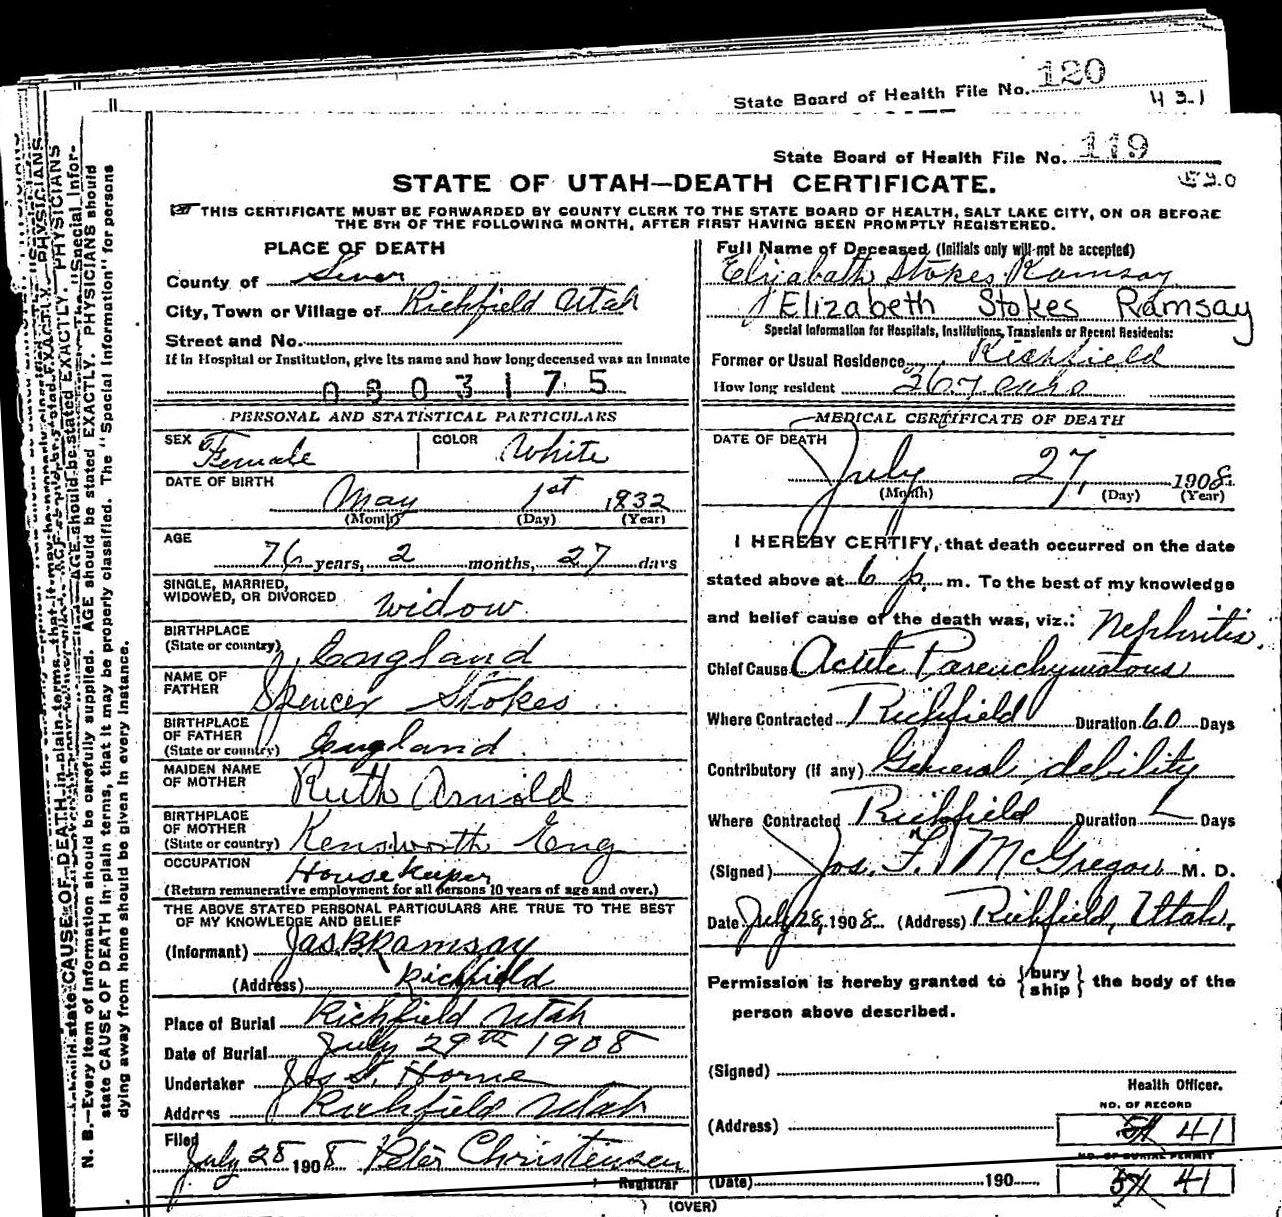 State Board of Health File No. 120
431
State Board of Health File No. 119
STATE OF UTAH—DEATH CERTIFICATE.
THIS CERTIFICATE MUST BE FORWARDED BY COUNTY CLERK TO THE STATE BOARD OF HEALTH, SALT LAKE CITY, ON OR BEFORE
THE 5TH OF THE FOLLOWING MONTH, AFTER FIRST HAVING BEEN PROMPTLY REGISTERED.
PLACE OF DEATH
County of Sevier
City, Town or Village of Richfield Utah
Street and No.
If in Hospital or Institution, give its name and how long deceased was an inmate
0803175
PERSONAL AND STATISTICAL PARTICULARS
SEX Female COLOR White
DATE OF BIRTH May 1st 1832
(Month) (Day) (Year)
AGE
76 years, 2 months, 27 days
SINGLE, MARRIED,
WIDOWED, OR DIVORCED widow
BIRTHPLACE
(State or country) England
NAME OF
FATHER Spencer Stokes
BIRTHPLACE
OF FATHER
(State or country) England
MAIDEN NAME
OF MOTHER Ruth Arnold
BIRTHPLACE
OF MOTHER
(State or country) Kensworth Eng
OCCUPATION House Keeper
(Return remunerative employment for all persons 10 years of age and over.)
THE ABOVE STATED PERSONAL PARTICULARS ARE TRUE TO THE BEST
OF MY KNOWLEDGE AND BELIEF
(Informant) Jas. B. Ramsay
(Address) Richfield
Place of Burial Richfield Utah
Date of Burial July 29th 1908
Undertaker Jos S. Horne
Address Richfield Utah
Filed
July 28 1908 Peter Christensen
Registrar
Full Name of Deceased (Initials only will not be accepted)
Elizabeth Stokes Ramsay
Elizabeth Stokes Ramsay
Special Information for Hospitals, Institutions, Transients or Recent Residents:
Former or Usual Residence Richfield
How long resident 26 years
MEDICAL CERTIFICATE OF DEATH
DATE OF DEATH
July 27, 1908
(Month) (Day) (Year)
I HEREBY CERTIFY, that death occurred on the date
stated above at 6 p. m. To the best of my knowledge
and belief cause of the death was, viz.: Nephritis.
Chief Cause Acute Parenchymatous
Where Contracted Richfield Duration 60 Days
Contributory (if any) General debility
Where Contracted Richfield Duration Days
(Signed) Jos. F. McGregor M. D.
Date July 28, 1908. (Address) Richfield, Utah.
Permission is hereby granted to {bury ship} the body of the
person above described.
(Signed)
Health Officer.
NO. OF RECORD
(Address) 41
NO. OF BURIAL PERMIT
(Date) 190 41
(OVER)
N. B.—Every item of information should be carefully supplied. AGE should be stated EXACTLY. PHYSICIANS should
state CAUSE OF DEATH in plain terms, that it may be properly classified. The "Special Information" for persons
dying away from home should be given in every instance.